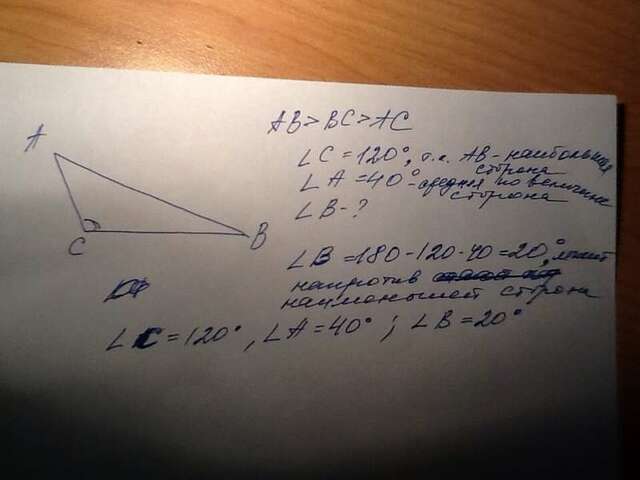 A
C
B
AB > BC > AC
∠C = 120°, т.к. AB - наибольшая
сторона
∠A = 40° - средняя по величине
сторона
∠B - ?
∠B = 180 - 120 - 40 = 20°, лежит
напротив
наименьшей стороны
∠C = 120°, ∠A = 40°; ∠B = 20°